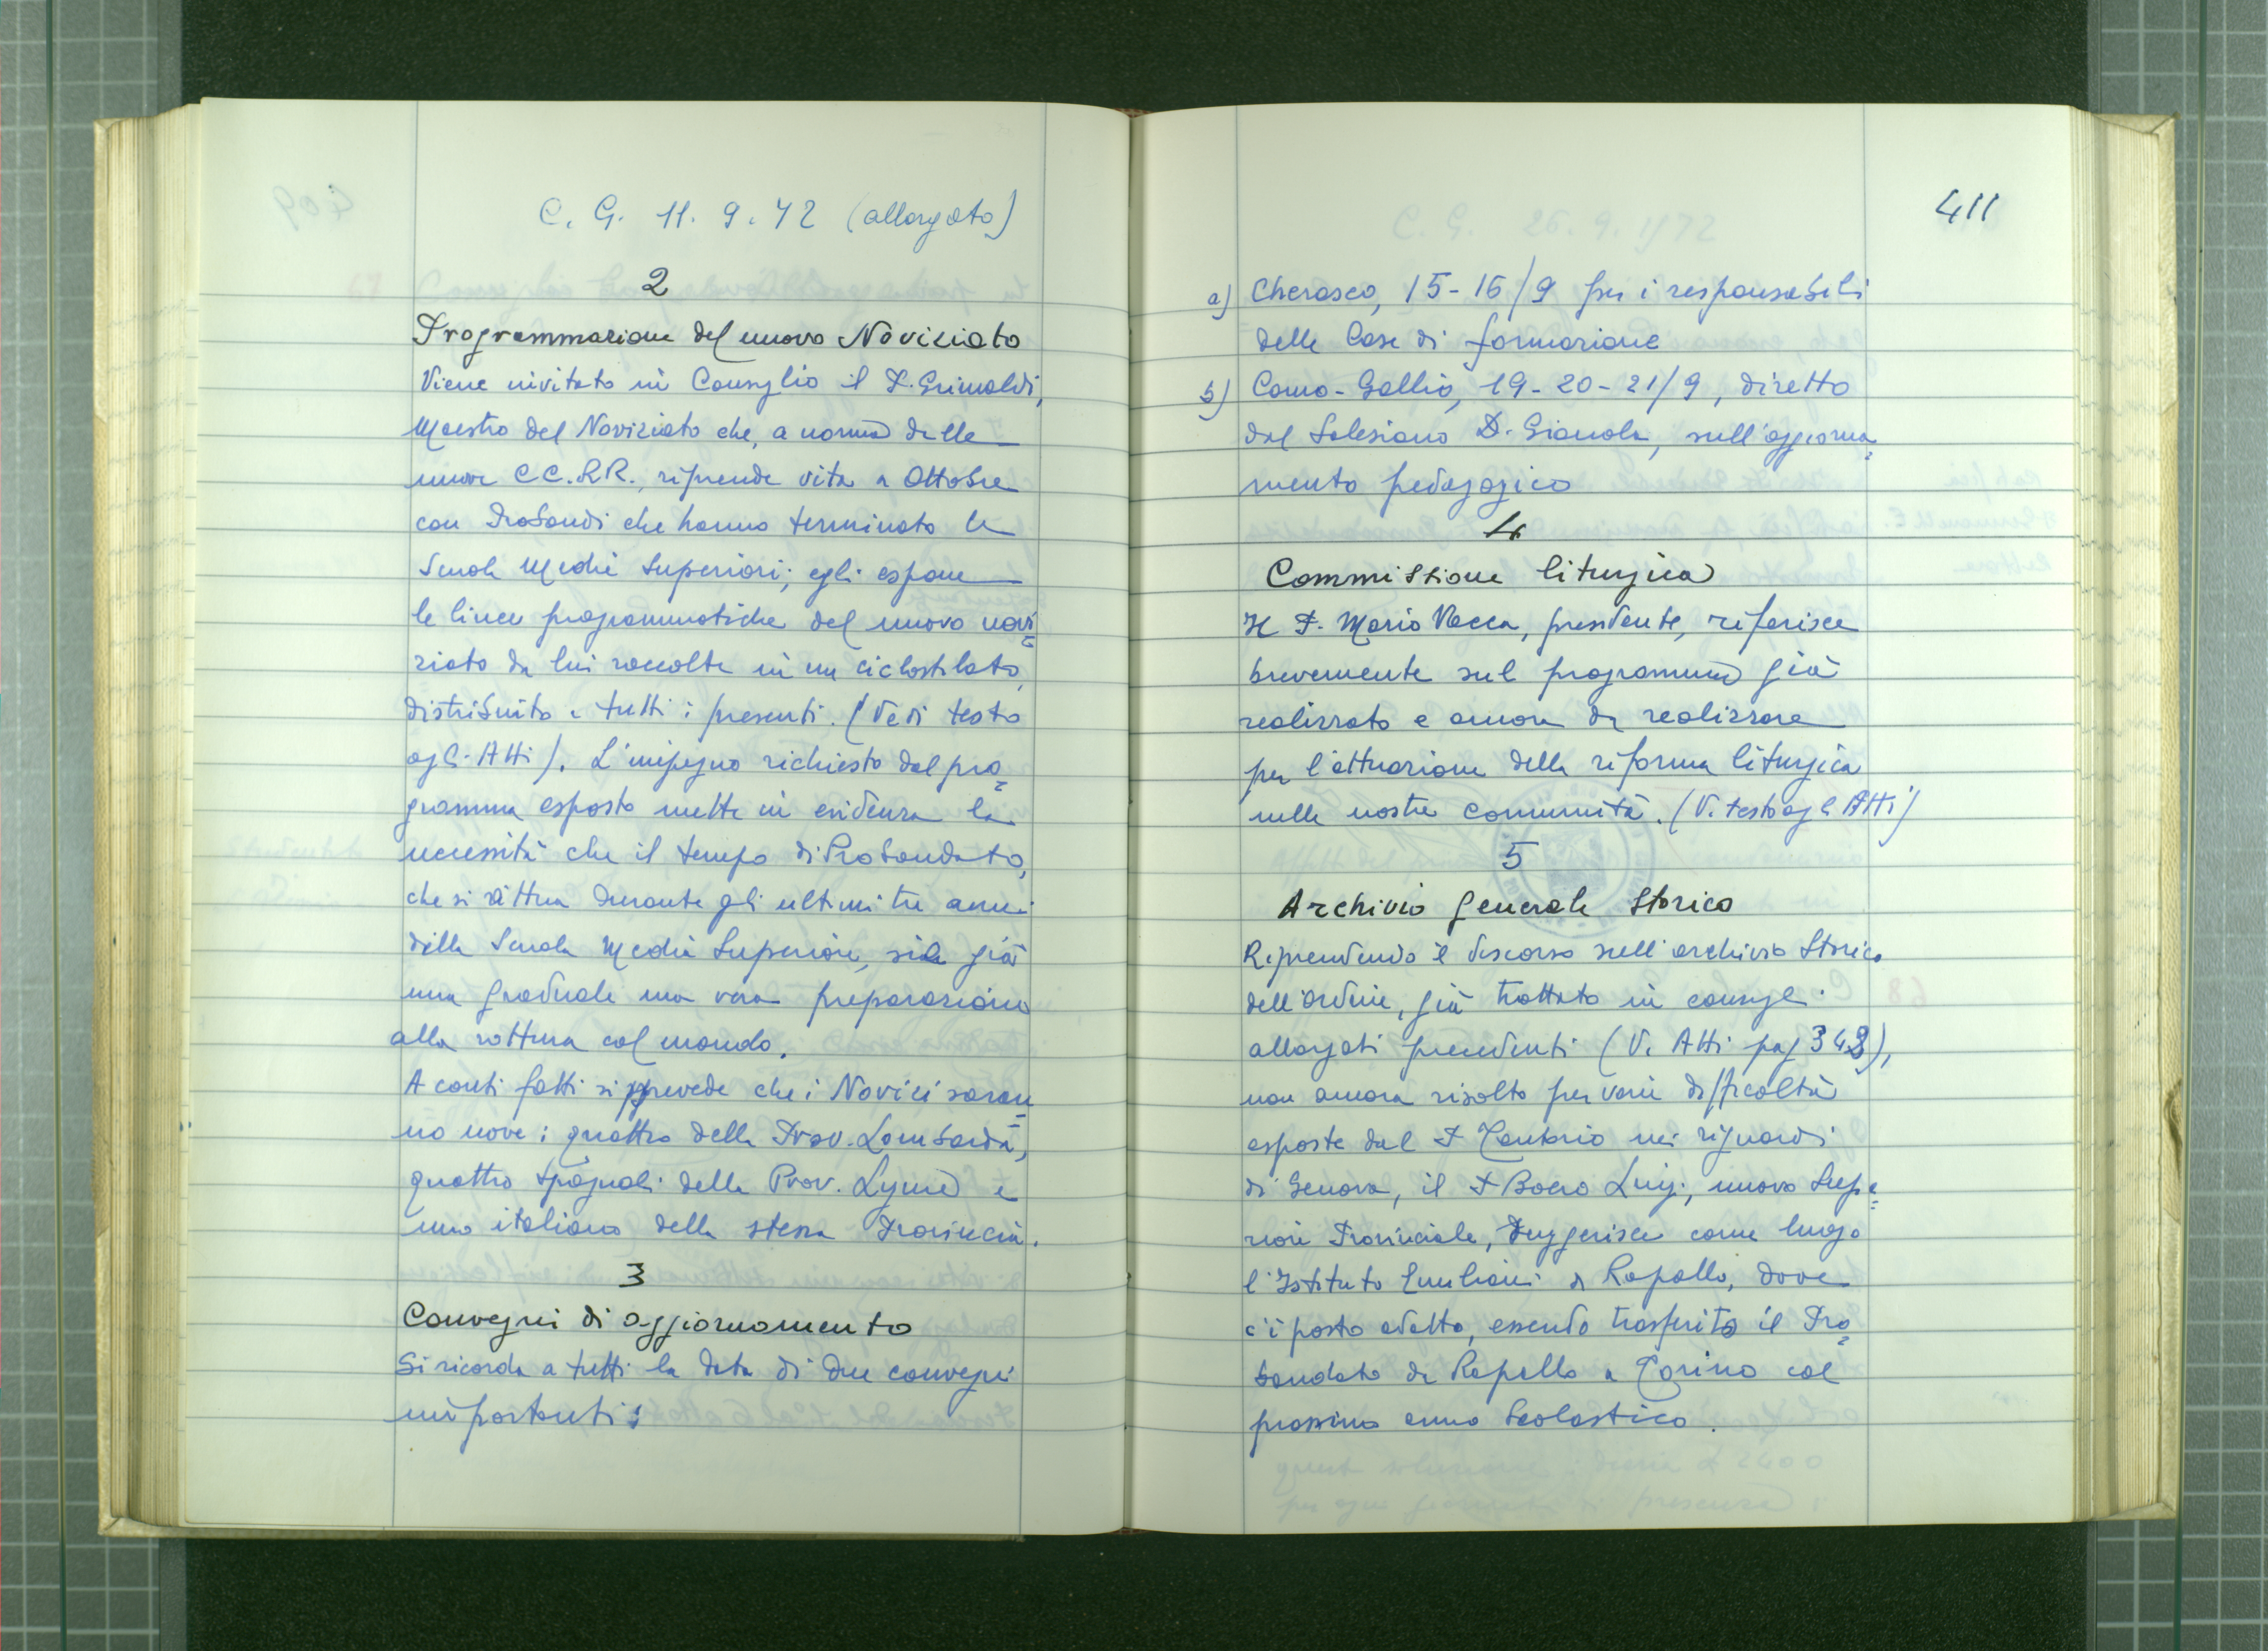 C. G. 11. 9. 72 (allargato)
2
Programmazione del nuovo Noviziato
Viene invitato in Consiglio il P. Grimaldi,
Maestro del Noviziato che, a norma delle
nuove CC.RR., riprende vita a Ottobre
con Probandi che hanno terminato le
Scuole Medie Superiori; egli espone
le linee programmatiche del nuovo novi=
ziato da lui raccolte in un ciclostilato,
distribuito a tutti i presenti. (Vedi testo
agli Atti). L'impegno richiesto dal pro=
gramma esposto mette in evidenza la
necessità che il tempo di Probandato,
che si attua durante gli ultimi tre anni
della Scuola Media Superiore, sia già
una graduale ma vera preparazione
alla rottura col mondo.
A conti fatti si prevede che i Novizi saran=
no nove: quattro della Prov. Lombarda,
quattro spagnoli della Prov. Ligure e
uno italiano della stessa Provincia.
3
Convegni di aggiornamento
Si ricorda a tutti la data di due convegni
importanti:
411
a) Cherasco, 15-16/9 per i responsabili
delle Case di formazione
b) Como-Gallio, 19-20-21/9, diretto
dal Salesiano D. Gianola, sull'aggiorna=
mento pedagogico
4
Commissione liturgica
Il P. Mario Vacca, presidente, riferisce
brevemente sul programma già
realizzato e ancora da realizzare
per l'attuazione della riforma liturgica
nelle nostre comunità. (V. testo agli Atti)
5
Archivio Generale Storico
Riprendendo il discorso sull'archivio Storico
dell'Ordine, già trattato in consigli
allargati precedenti (V. Atti pag 343),
non ancora risolto per varie difficoltà
esposte dal P. Tentorio nei riguardi
di Genova, il P. Boero Luigi, nuovo Supe=
riore Provinciale, suggerisce come luogo
l'Istituto Emiliani di Rapallo, dove
c'è posto adatto, essendo trasferito il Pro=
bandato da Rapallo a Torino col
prossimo anno Scolastico.